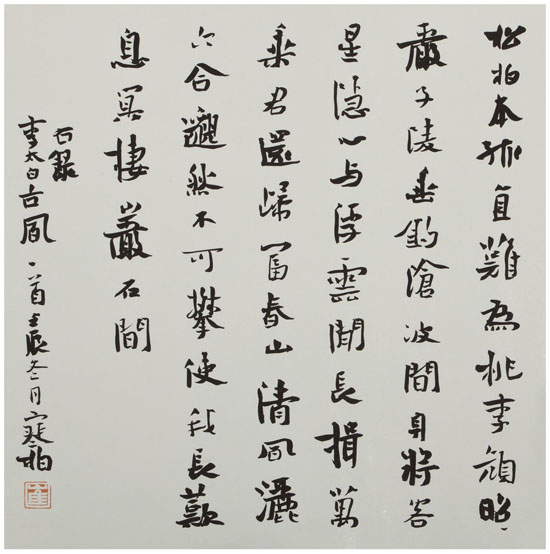 松柏本孤直難為桃李顏昭〻
嚴子陵垂釣滄波間身將客
星隱心与浮雲閑長揖萬
乘君還歸冨春山清風灑
六合邈然不可攀使我長歎
息冥棲巖石間
右錄
李太白古風一首壬辰冬月寒柏